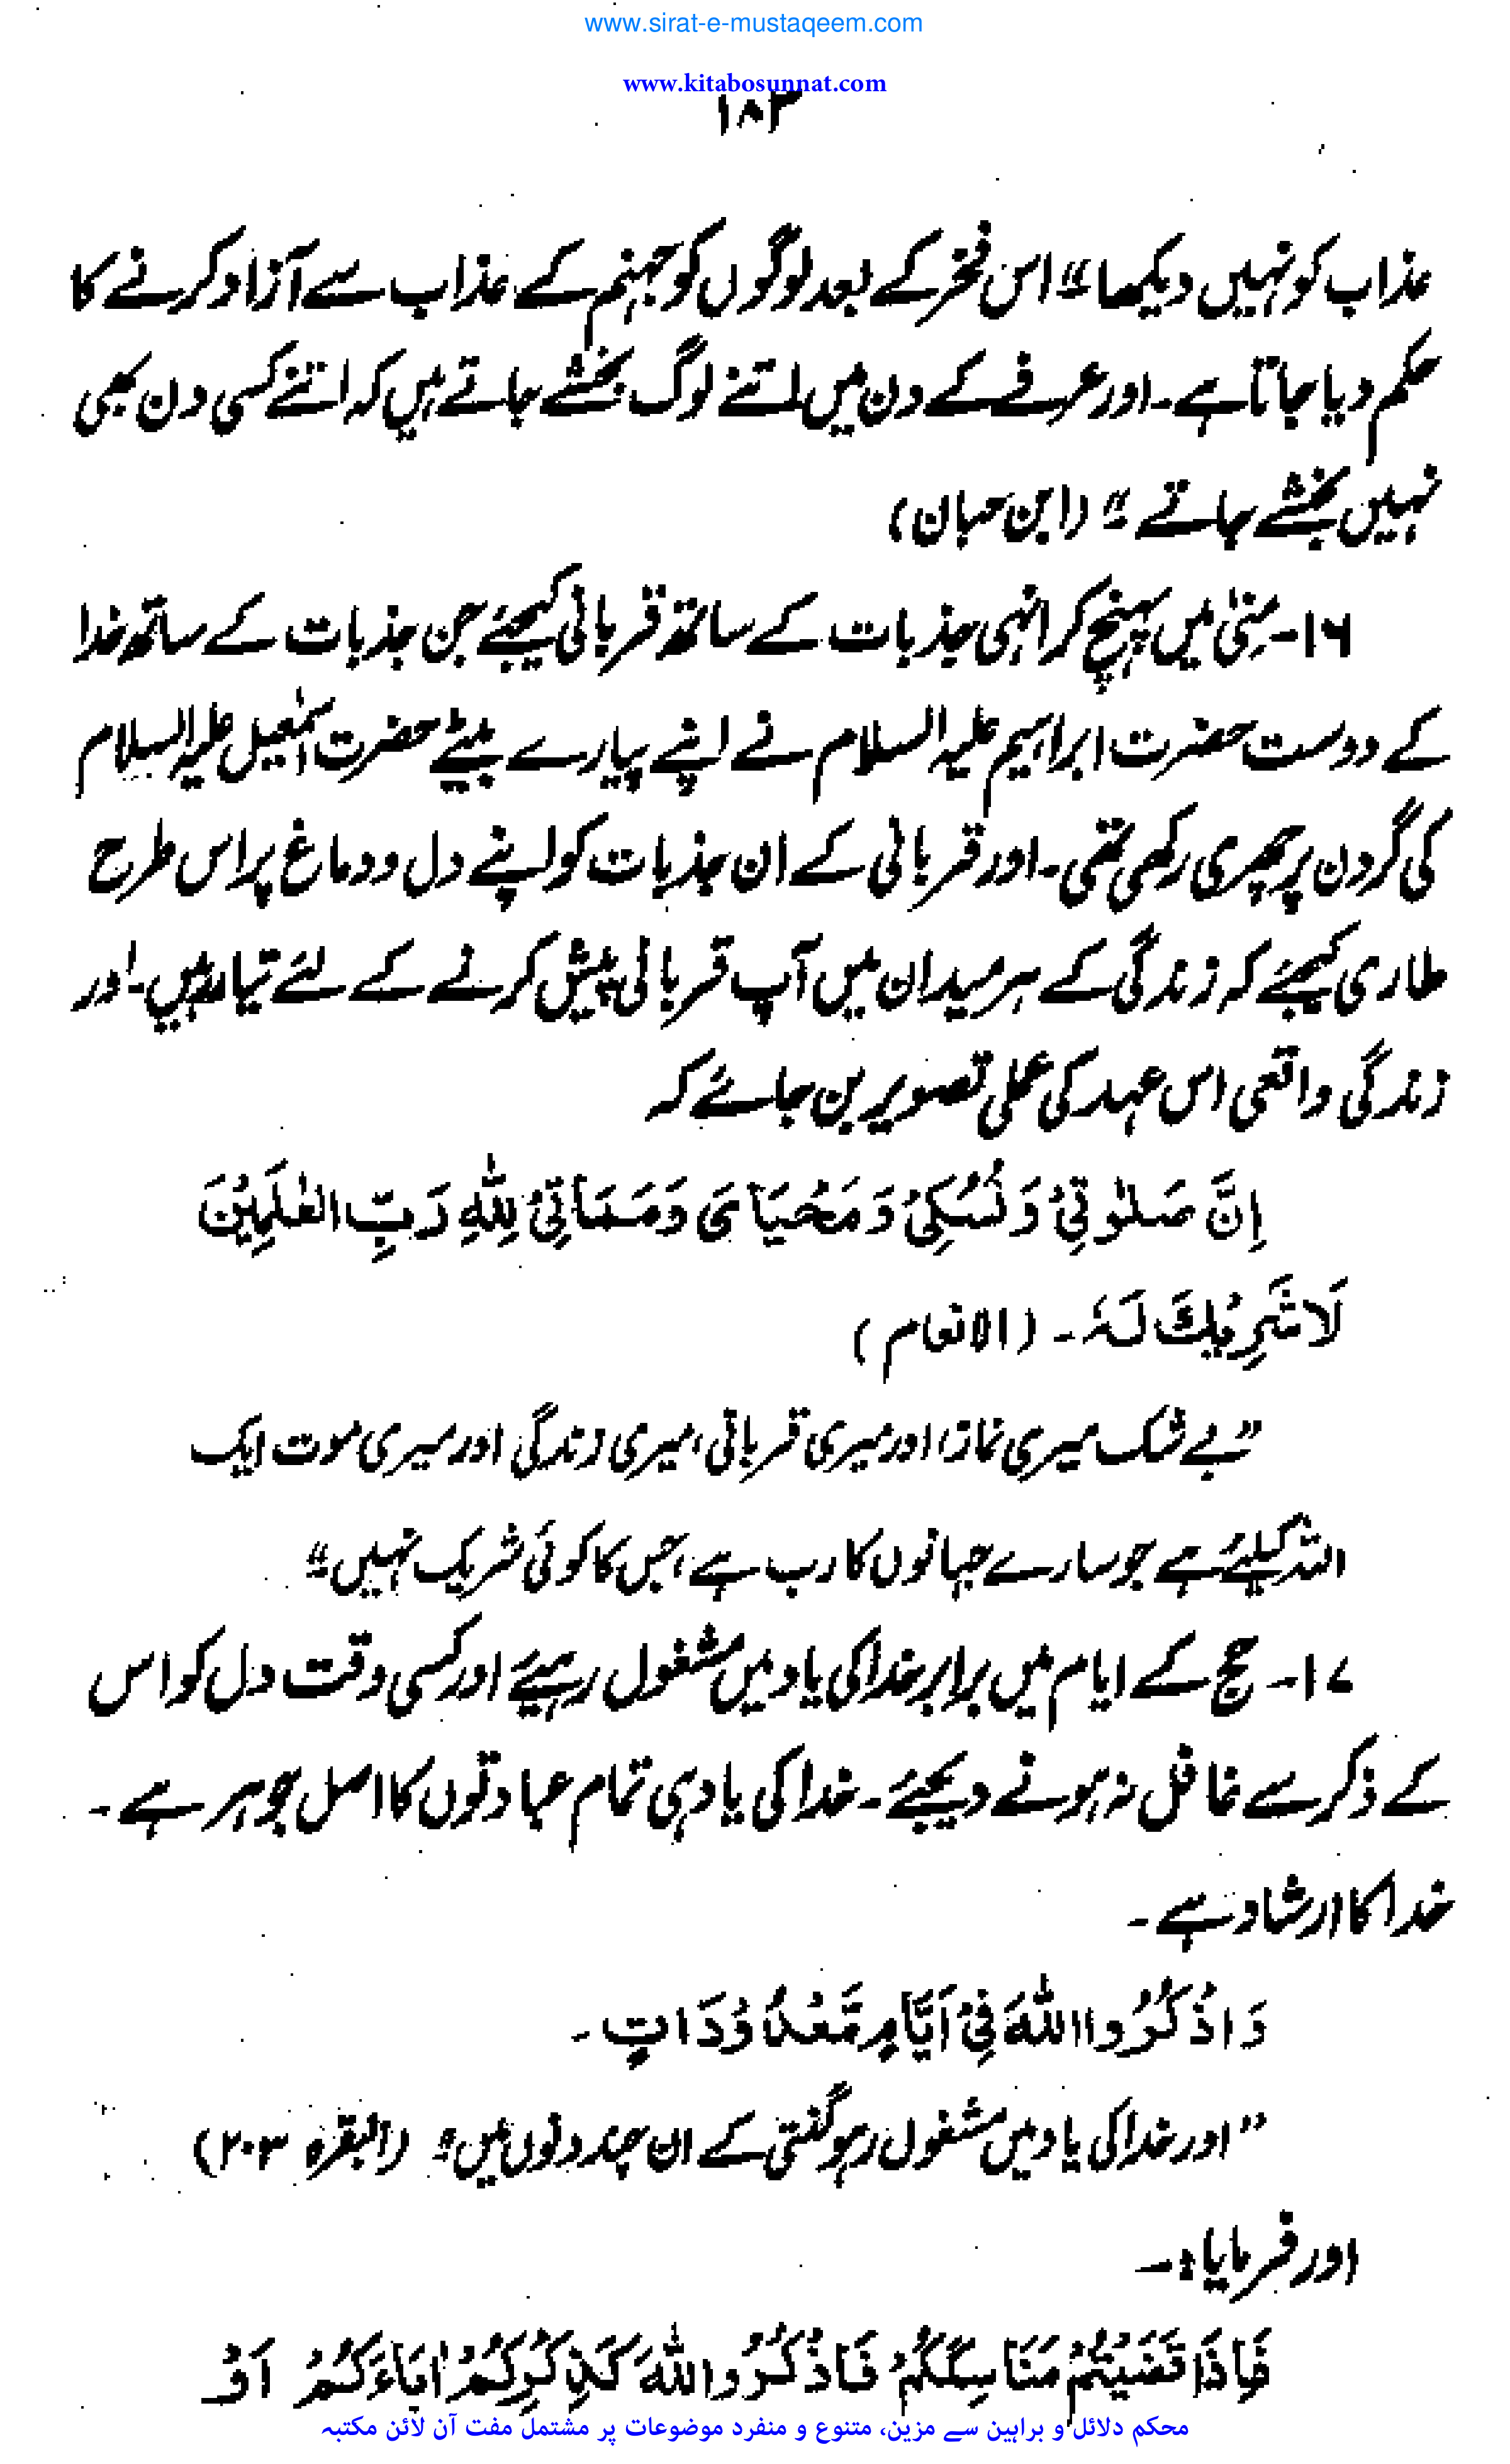 www.sirat-e-mustaqeem.com
www.kitabosunnat.com
۱۸۳
عذاب کو نہیں دیکھا" اس فخر کے بعد لوگوں کو جہنم کے عذاب سے آزاد کرنے کا
حکم دیا جاتا ہے۔ اور عرفے کے دن میں اتنے لوگ بخشے جاتے ہیں کہ اتنے کسی دن بھی
نہیں بخشے جاتے" (ابن حبان)
۱۶- منیٰ میں پہنچ کر انہی جذبات کے ساتھ قربانی کیجئے جن جذبات کے ساتھ خدا
کے دوست حضرت ابراہیم علیہ السلام نے اپنے پیارے بیٹے حضرت اسمٰعیل علیہ السلام
کی گردن پر چھری رکھی تھی۔ اور قربانی کے ان جذبات کو اپنے دل و دماغ پر اس طرح
طاری کیجئے کہ زندگی کے ہر میدان میں آپ قربانی پیش کرنے کے لئے تیار رہیں۔ اور
زندگی واقعی اس عہد کی عملی تصویر بن جائے کہ
اِنَّ صَلٰوتِیْ وَنُسُکِیْ وَمَحْیَایَ وَمَمَاتِیْ لِلّٰهِ رَبِّ الْعٰلَمِیْنَ
لَا شَرِیْكَ لَهٗ ۔ (الانعام)
"بے شک میری نماز اور میری قربانی، میری زندگی اور میری موت ایک
اللہ کیلئے ہے جو سارے جہانوں کا رب ہے، جس کا کوئی شریک نہیں"
۱۷- حج کے ایام میں برابر خدا کی یاد میں مشغول رہیئے اور کسی وقت دل کو اس
کے ذکر سے غافل نہ ہونے دیجئے۔ خدا کی یاد ہی تمام عبادتوں کا اصل جوہر ہے۔
خدا کا ارشاد ہے۔
وَاذْکُرُوا اللّٰهَ فِیْ اَیَّامٍ مَّعْدُوْدَاتٍ ۔
"اور خدا کی یاد میں مشغول رہو گنتی کے ان چند دنوں میں" (البقرہ ۲۰۳)
اور فرمایا:۔
فَاِذَا قَضَیْتُمْ مَنَاسِکَکُمْ فَاذْکُرُوا اللّٰهَ کَذِکْرِکُمْ اٰبَاءَکُمْ اَوْ
محکم دلائل و براہین سے مزین، متنوع و منفرد موضوعات پر مشتمل مفت آن لائن مکتبہ